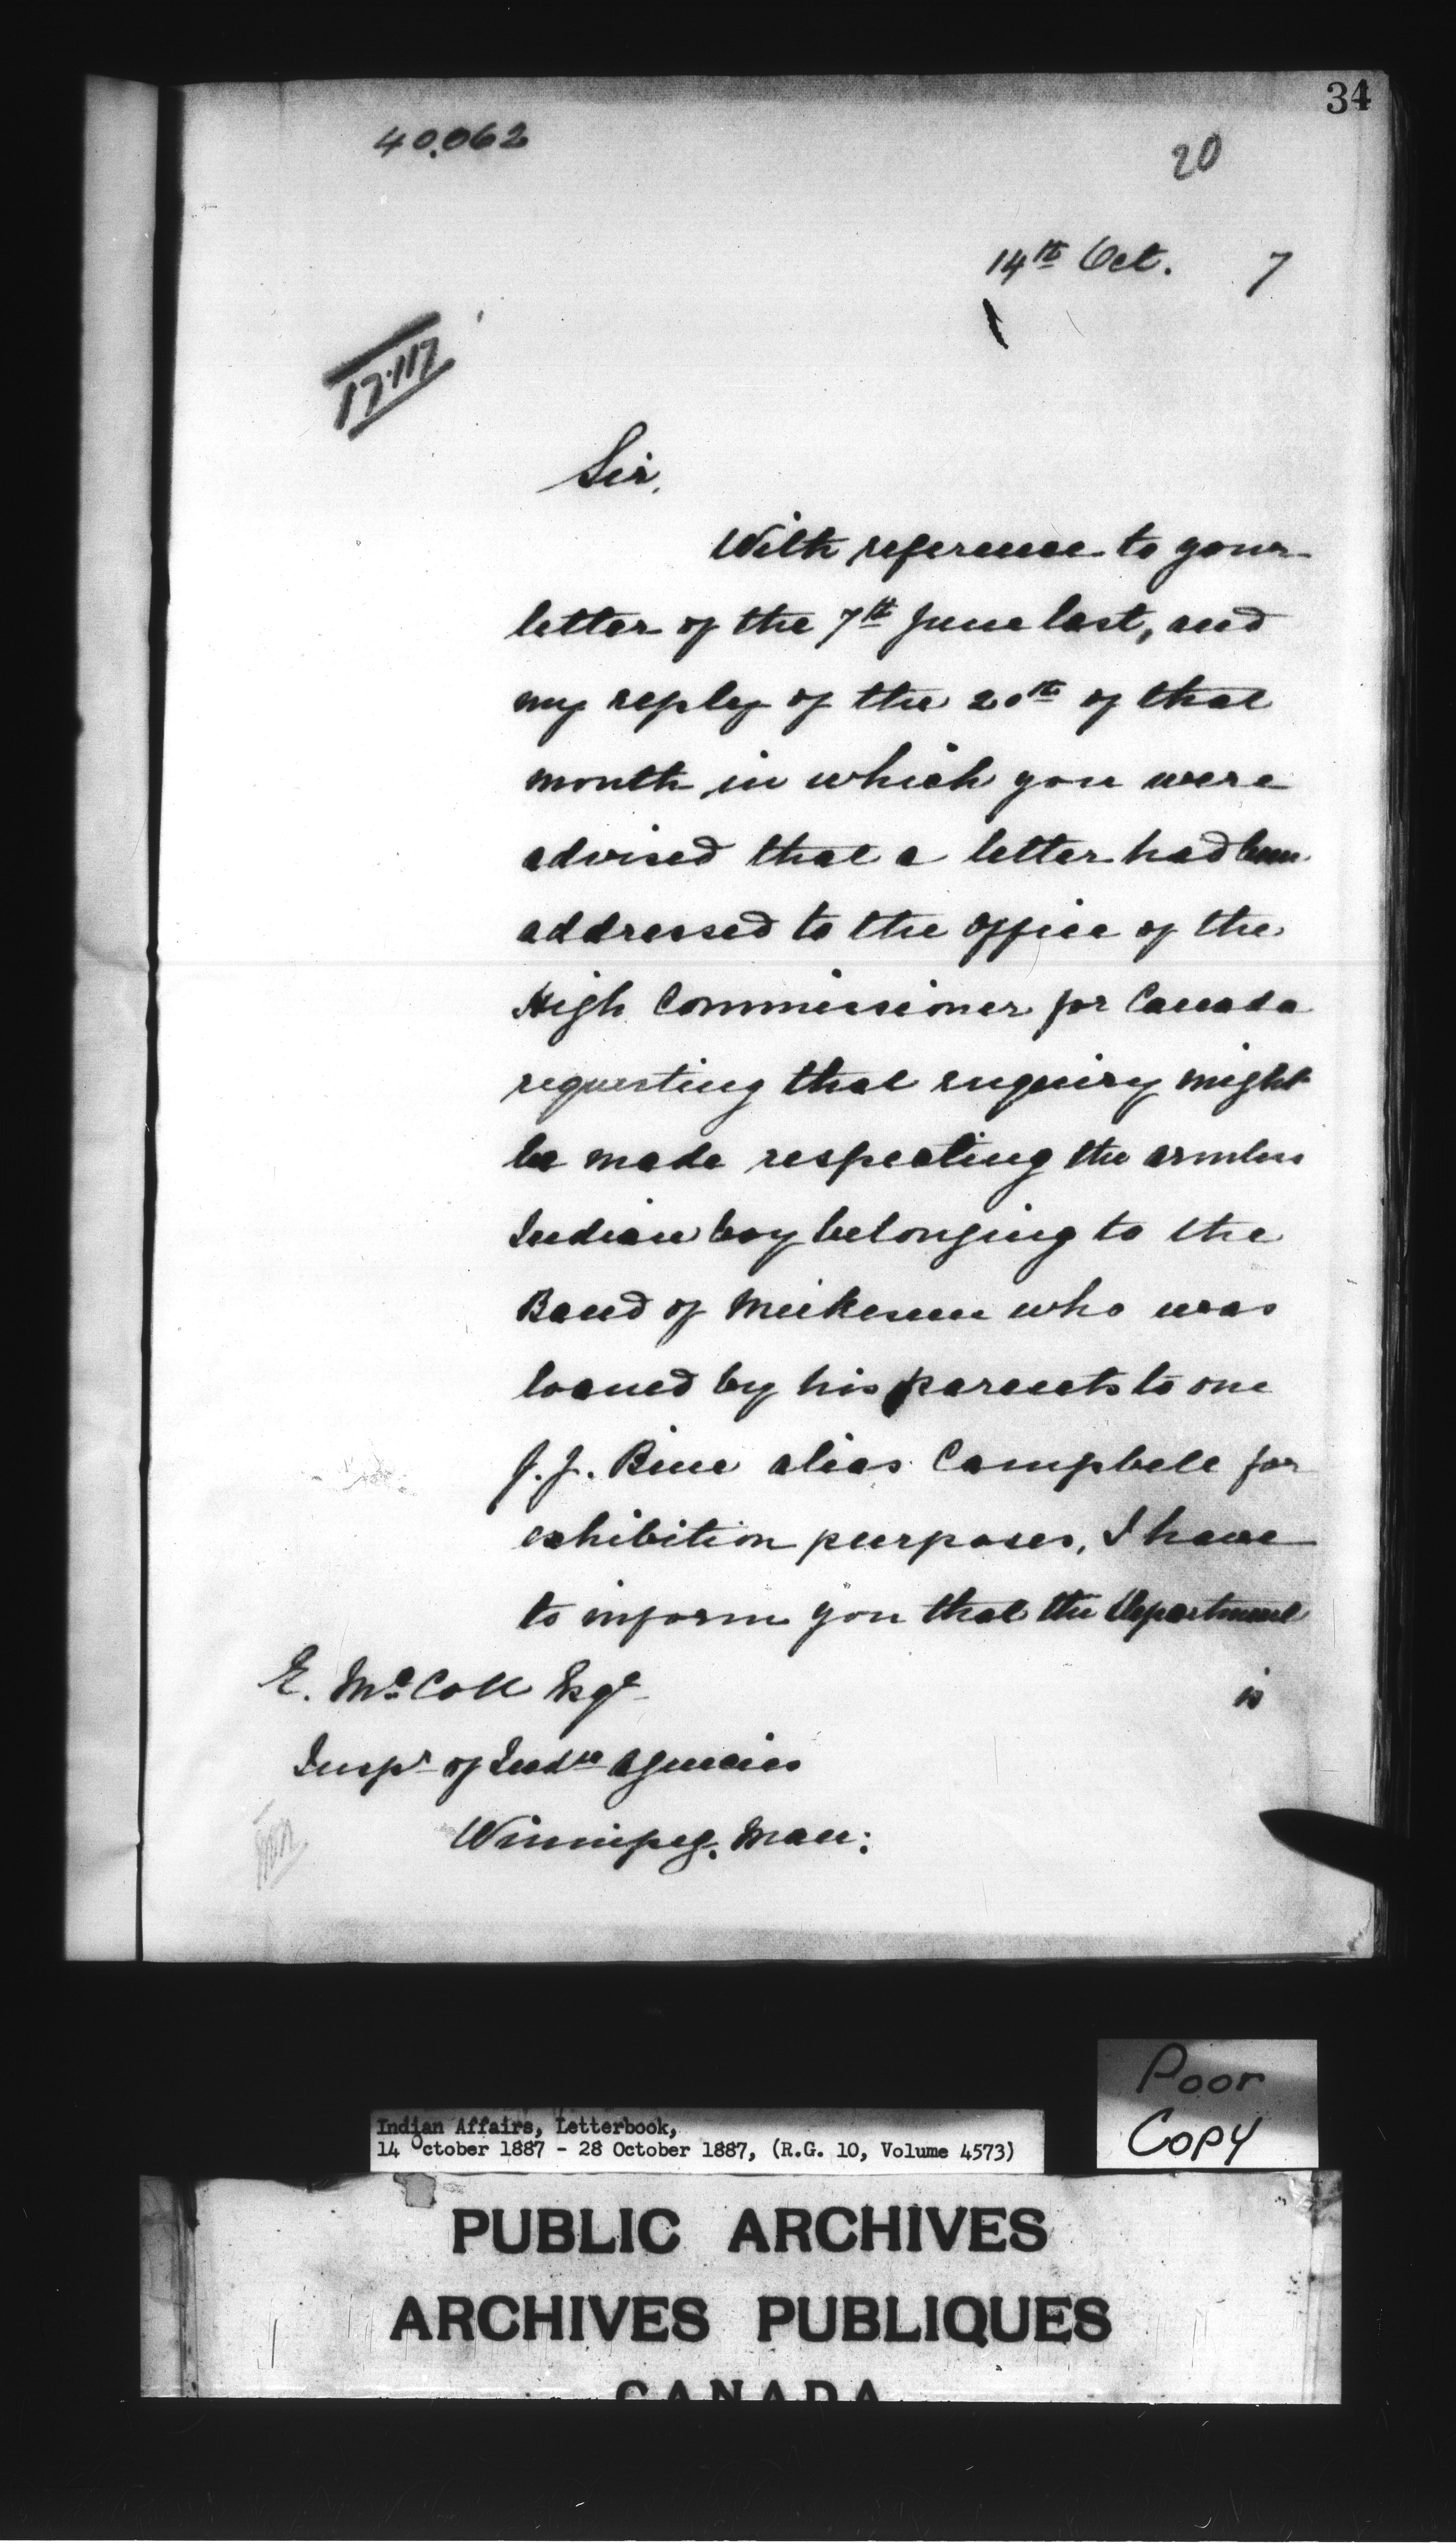 34
40.062
20
14th Oct. 7
17.117
Sir,
With reference to your
letter of the 7th June last, and
my reply of the 20th of that
month, in which you were
advised that a letter had been
addressed to the Office of the
High Commissioner for Canada
requesting that enquiry might
be made respecting the armless
Indian boy belonging to the
Band of who was
loaned by his parents to one
J. J. alias Campbell for
exhibition purposes, I have
to inform you that the Department
is
E. McColl Esqe
Inspr of Indn Agencies
Winnipeg. Man:
Poor
Copy
Indian Affairs, Letterbook,
14 October 1887 - 28 October 1887, (R.G. 10, Volume 4573)
PUBLIC ARCHIVES
ARCHIVES PUBLIQUES
CANADA